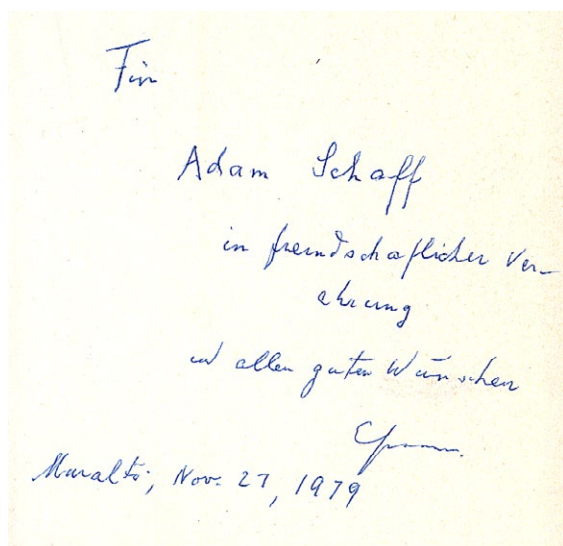 Für
Adam Schaff
in freundschaftlicher Ver-
ehrung
und allen guten Wünschen
Muralto, Nov. 27, 1979